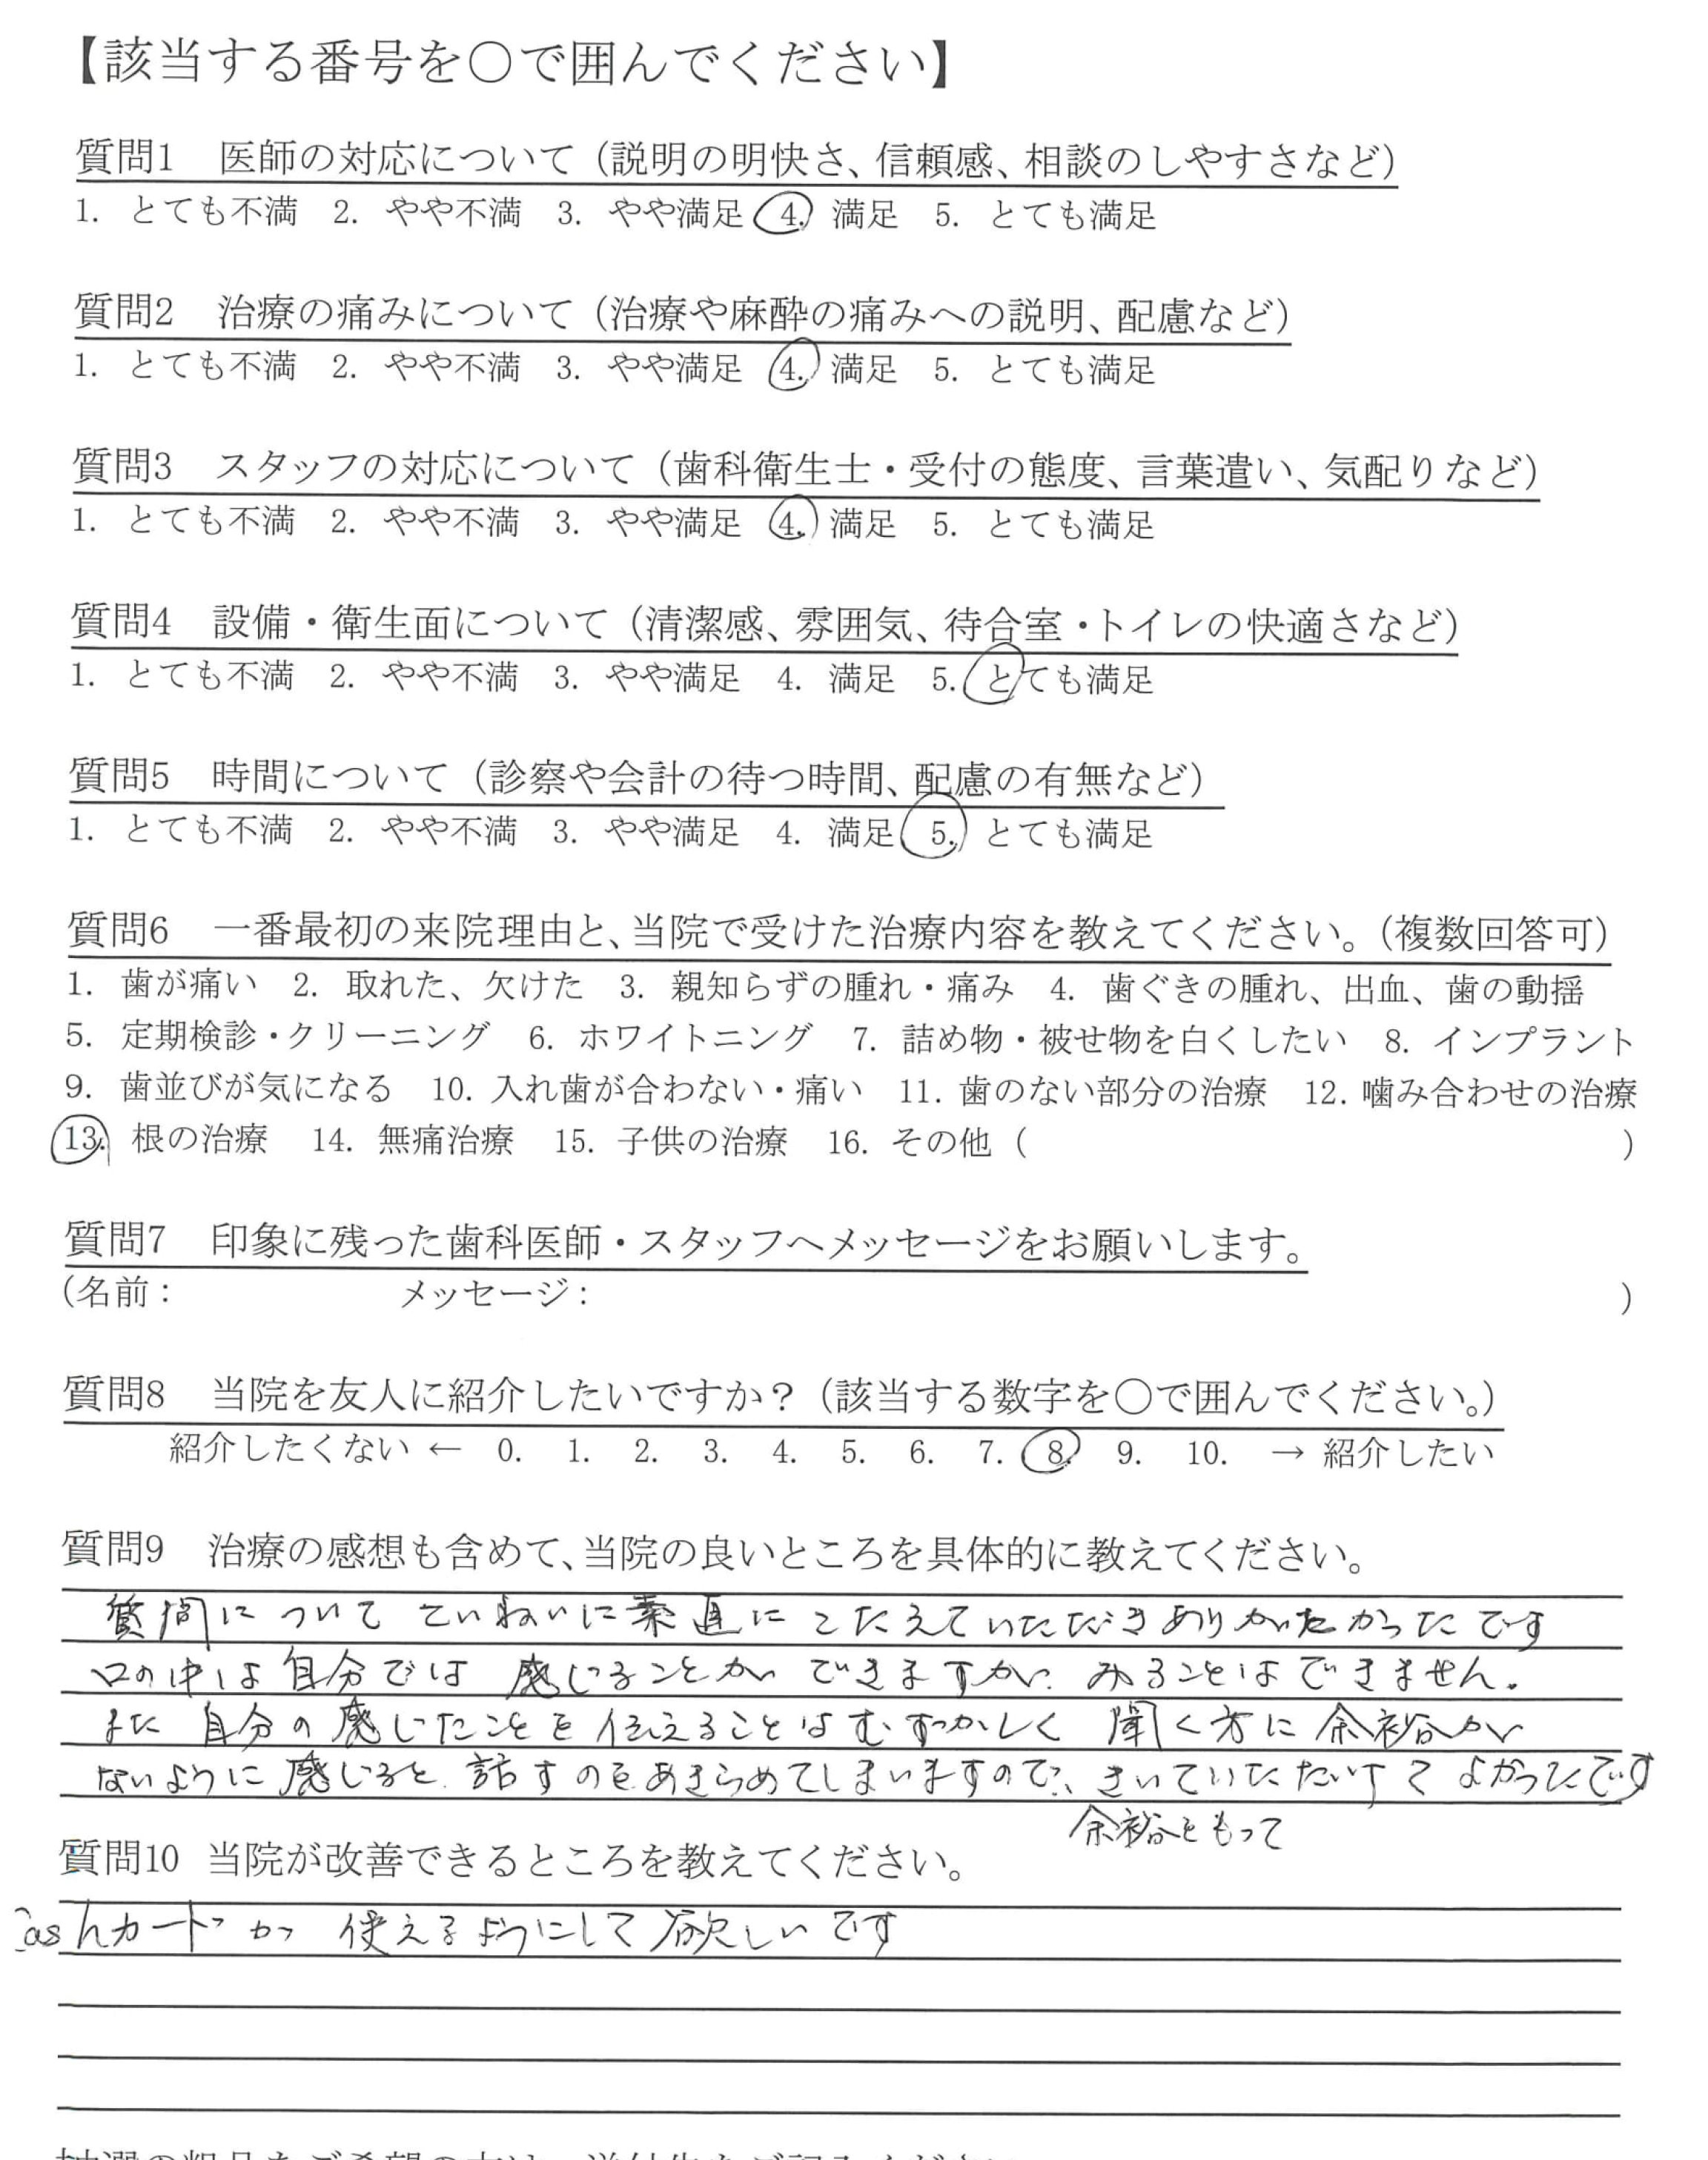 【該当する番号を○で囲んでください】
質問1 医師の対応について（説明の明快さ、信頼感、相談のしやすさなど）
1. とても不満 2. やや不満 3. やや満足 4. 満足 5. とても満足
質問2 治療の痛みについて（治療や麻酔の痛みへの説明、配慮など）
1. とても不満 2. やや不満 3. やや満足 4. 満足 5. とても満足
質問3 スタッフの対応について（歯科衛生士・受付の態度、言葉遣い、気配りなど）
1. とても不満 2. やや不満 3. やや満足 4. 満足 5. とても満足
質問4 設備・衛生面について（清潔感、雰囲気、待合室・トイレの快適さなど）
1. とても不満 2. やや不満 3. やや満足 4. 満足 5. とても満足
質問5 時間について（診察や会計の待つ時間、配慮の有無など）
1. とても不満 2. やや不満 3. やや満足 4. 満足 5. とても満足
質問6 一番最初の来院理由と、当院で受けた治療内容を教えてください。（複数回答可）
1. 歯が痛い 2. 取れた、欠けた 3. 親知らずの腫れ・痛み 4. 歯ぐきの腫れ、出血、歯の動揺
5. 定期検診・クリーニング 6. ホワイトニング 7. 詰め物・被せ物を白くしたい 8. インプラント
9. 歯並びが気になる 10. 入れ歯が合わない・痛い 11. 歯のない部分の治療 12. 噛み合わせの治療
13. 根の治療 14. 無痛治療 15. 子供の治療 16. その他（ ）
質問7 印象に残った歯科医師・スタッフへメッセージをお願いします。
（名前： メッセージ： ）
質問8 当院を友人に紹介したいですか？（該当する数字を○で囲んでください。）
紹介したくない ← 0. 1. 2. 3. 4. 5. 6. 7. 8. 9. 10. → 紹介したい
質問9 治療の感想も含めて、当院の良いところを具体的に教えてください。
質問について ていねいに素直に こたえていただきありがたかったです
口の中は自分では 感じることが できますが、みることはできません。
また 自分の感じたことを伝えることはむずかしく 聞く方に余裕が
ないように感じると、話すのをあきらめてしまいますので、きいていただけてよかったです
余裕をもって
質問10 当院が改善できるところを教えてください。
cashカードが 使えるようにして欲しいです